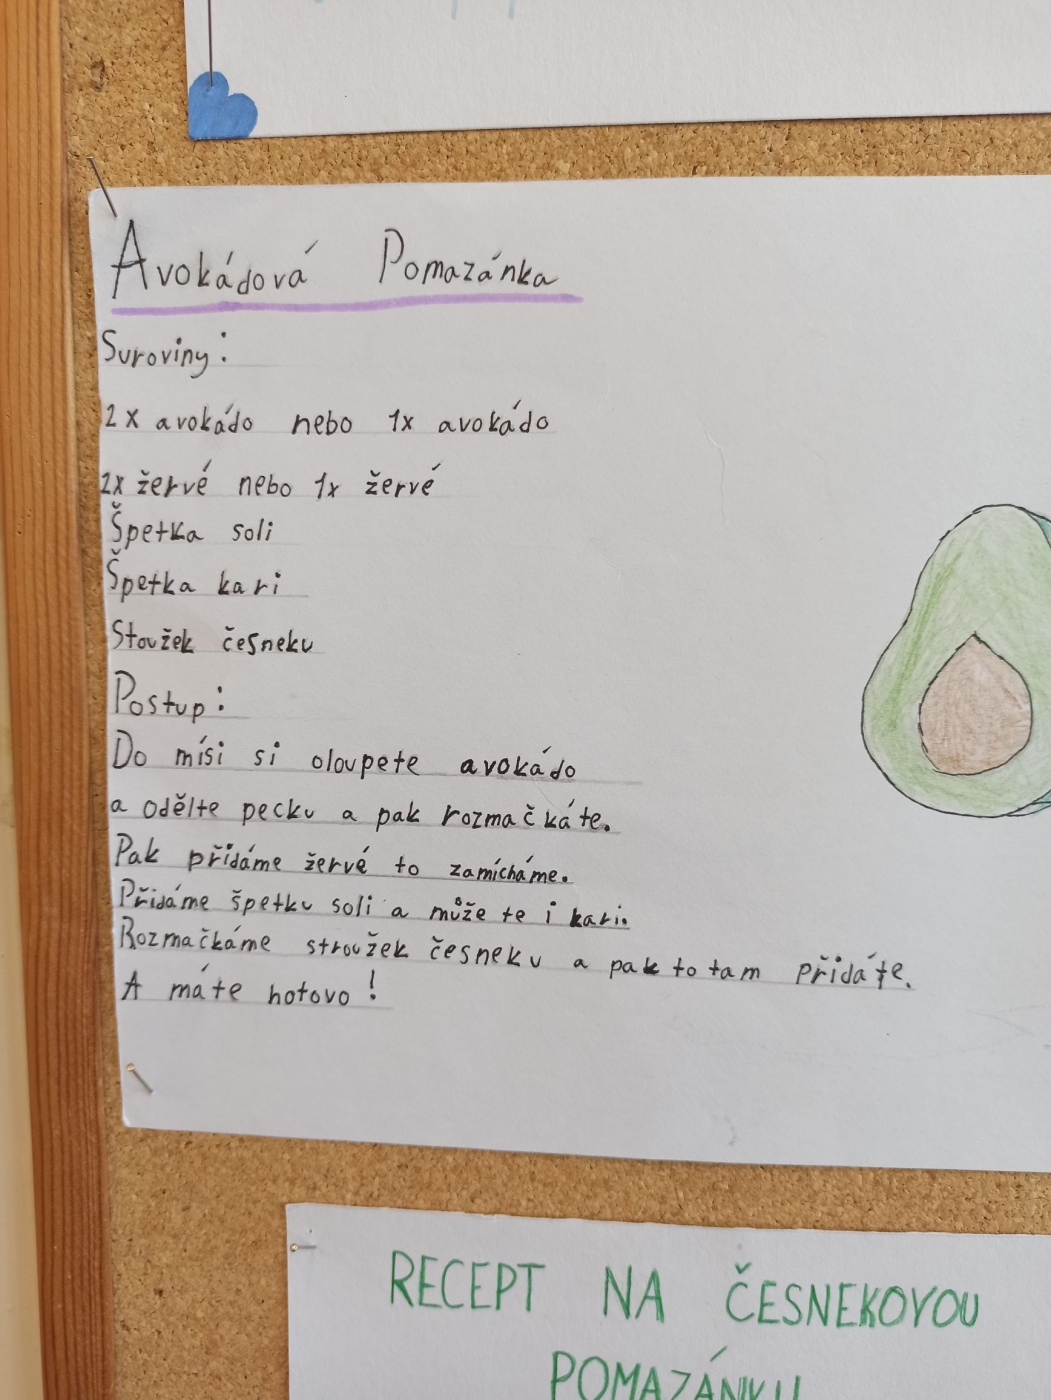 Avokádová Pomazánka
Suroviny:
2x avokádo nebo 1x avokádo
2x žervé nebo 1x žervé
Špetka soli
Špetka kari
Stoužek česneku
Postup:
Do mísi si oloupete avokádo
a odělte pecku a pak rozmačkáte.
Pak přidáme žervé to zamícháme.
Přidáme špetku soli a může te i kari.
Rozmačkáme stroužek česneku a pak to tam přidáte.
A máte hotovo!
RECEPT NA ČESNEKOVOU
POMAZÁNKU